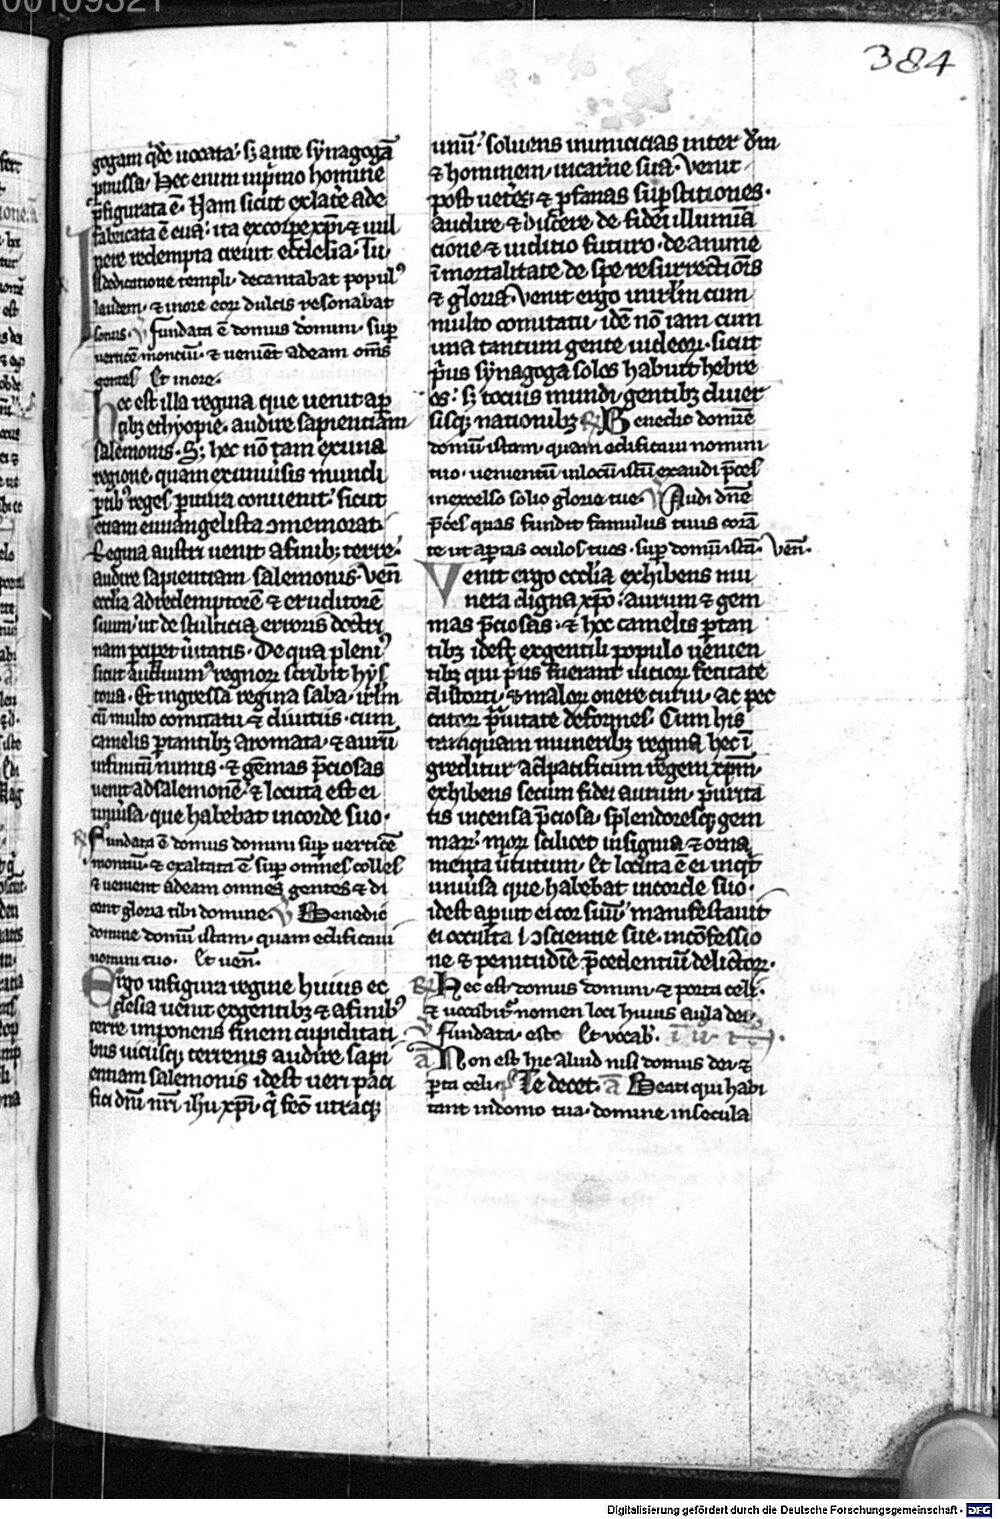 384
gogam q̃dẽ uocata. s; ante synagogã
p̃missa. Hec enim in p̃mo homine
p̃figurata ẽ. Nam sicut ex latẽ ade
fabricata ẽ eua. ita ex corpe xp̃i ⁊ uul
nere redempta creuit ecclesia. In
dedicatione templi. decantabat popul᷒
laudem. ⁊ in ore eor̃ dulcis resonabat
sonus. ℣ fundata ẽ domus domini. sup̃
verticẽ montiũ. ⁊ venient ad eam om̃s
gentes Et in ore.
hec est illa regina que uenit ap̃
tibꝫ ethyopie. audire sapientiam
salemonis. S; hec nõ tam ex una
regione. quam ex uniũsis mundi
p̃tibꝰ reges puniua conuenit. sicut
etiam euuangelista ɔmemorat.
Regina austri uenit a finibꝫ terre.
audire sapientiam salemonis. veñ
ecclia ad redemptorẽ ⁊ eruditorẽ
suum. ut de stulticia erroris doctri
nam p̃cip̃et ũitatis. De qua pleni᷒
sicut antiquiim᷒ regnor̃ scribit hys
toria. Et ingressa regina saba. irl̃m
cũ multo comitatu ⁊ diuitiis. cum
camelis p̃tantibꝫ aromata. ⁊ aurũ
infinitũ nimis. ⁊ gẽmas p̃ciosas
uenit ad salemonẽ. ⁊ locuta est ei
uniũsa. que habebat in corde suo.
℟ Fundata ẽ domus domini sup̃ verticẽ
montiũ. ⁊ exaltata ẽ sup̃ omnes colles
⁊ uenient ad eam omnes gentes ⁊ di
cent gloria tibi domine. ℣ Benedic
domine domũ istam. quam edificaui
nomini tuo. Et ueñ.
Ergo insignia regine huius ec
clesia uenit ex gentibꝫ ⁊ a finibꝰ
terre imponens finem cupiditati
bus uiciisq; terrenis audire sapi
entiam salemonis idest ueri paci
fici dñi nr̃i ih̃u xp̃i. q̃ fec̃ utraq;
unũ. soluens inimicicias inter dẽm
⁊ hominem. in carne sua. Venit
post uetẽs. ⁊ p̃fanas sup̃sticiones.
audire ⁊ discere de fidei illumiã
cione ⁊ iuditio futuro. de anime
ĩmortalitate de spe resurrectiõis
⁊ gloria. Venit ergo in irl̃m cum
multo comitatu. idẽ nõ iam cum
una tantum gente iudeor̃. sicut
p̃us synagoga solos habuit hebre
os. s; tocius mundi gentibꝫ diuer
sisq; nationibꝫ ℟ Benedic domiẽ
domũ istam. quam edificaui nomini
tuo. uenientiũ in locũ istũ exaudi p̃ces
in excelso solio glorie tue. ℣ Audi dñe
p̃ces quas fundit famulus tuus corã
te ut aperias oculos tuos. sup̃ domũ istã. Veñ.
Venit ergo ecclia exhibens mu
nera digna xp̃o. aurum ⁊ gem
mas p̃ciosas. ⁊ hoc camelis p̃tan
tibꝫ idest ex gentili populo uenien
tibꝫ qui p̃us fuerant uicior̃ feditate
distorti. ⁊ malor̃ onere curui. ac pec
cator̃ p̃uitate deformes. Cum his
tamquam muneribꝫ regina hec ĩ
greditur ad pacificum regem xp̃m.
exhibens secum fidei aurum. p̃urita
tis incensa p̃ciosa. sp̃lendoresq; gem
mar̃. mor̃ scilicet insignia ⁊ orna
menta uirtutum. Et locuta ẽ ei inq̃t
uniũsa que habebat in corde suo.
idest aperuit ei cor suũ. manifestauit
ei occulta ɔscientie sue. in cõfessio
ne ⁊ penitudiẽ p̃cedentiũ delictor̃.
℟ Hec est domus domini. ⁊ porta celi.
⁊ uocabit᷒ nomen loci huius aula dei.
℣ fundata. este Et vocab̃.
a Non est hic aliud nisi domus dei ⁊
p̃ta celi. p̃s Te decet. a Beati qui habi
tant in domo tua. domine in secula
Digitalisierung gefördert durch die Deutsche Forschungsgemeinschaft - DFG